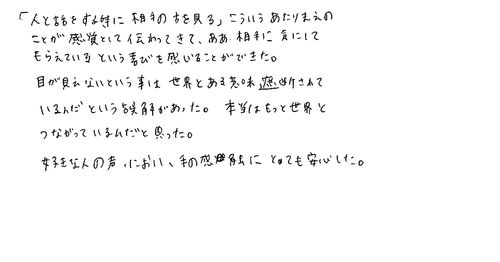 「人と話をする時に相手の方を見る」こういうあたりまえの
ことが感覚として伝わってきて、ああ相手に気にして
もらえているという喜びを感じることができた。
目が見えないという事は世界とある意味、遮断されて
いるんだという誤解があった。本当はもっと世界と
つながっているんだと思った。
好きな人の声、におい、手の感触に とても安心した。